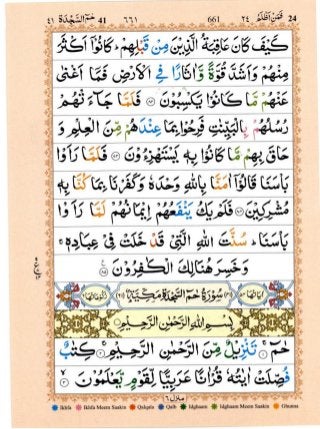 حٰمٓ السَّجْدَة ٤١ 41 ٦٦١ 661 فَمَنْ اَظْلَمُ ٢٤ 24
كَيْفَ كَانَ عَاقِبَةُ الَّذِيْنَ مِنْ قَبْلِهِمْ ؕ كَانُوْۤا اَكْثَرَ
مِنْهُمْ وَاَشَدَّ قُوَّةً وَّاٰثَارًا فِي الْاَرْضِ فَمَاۤ اَغْنٰى
عَنْهُمْ مَّا كَانُوْا يَكْسِبُوْنَ ﴿٨٢﴾ فَلَمَّا جَآءَتْهُمْ
رُسُلُهُمْ بِالْبَيِّنٰتِ فَرِحُوْا بِمَا عِنْدَهُمْ مِّنَ الْعِلْمِ وَ
حَاقَ بِهِمْ مَّا كَانُوْا بِهٖ يَسْتَهْزِءُوْنَ ﴿٨٣﴾ فَلَمَّا رَاَوْا
بَاْسَنَا قَالُوْۤا اٰمَنَّا بِاللّٰهِ وَحْدَهٗ وَكَفَرْنَا بِمَا كُنَّا بِهٖ
مُشْرِكِيْنَ ﴿٨٤﴾ فَلَمْ يَكُ يَنْفَعُهُمْ اِيْمَانُهُمْ لَمَّا رَاَوْا
بَاْسَنَا ؕ سُنَّتَ اللّٰهِ الَّتِيْ قَدْ خَلَتْ فِيْ عِبَادِهٖ ۚ
وَخَسِرَ هُنَالِكَ الْكٰفِرُوْنَ ﴿٨٥﴾
سُوْرَةُ حٰمٓ السَّجْدَةِ مَكِّيَّةٌ
بِسْمِ اللّٰهِ الرَّحْمٰنِ الرَّحِيْمِ
حٰمٓ ﴿١﴾ تَنْزِيْلٌ مِّنَ الرَّحْمٰنِ الرَّحِيْمِ ﴿٢﴾ كِتٰبٌ
فُصِّلَتْ اٰيٰتُهٗ قُرْاٰنًا عَرَبِيًّا لِّقَوْمٍ يَّعْلَمُوْنَ ﴿٣﴾
منزل ٦
Ikhfa Ikhfa Meem Saakin Qalqala Qalb Idghaam Idghaam Meem Saakin Ghunna